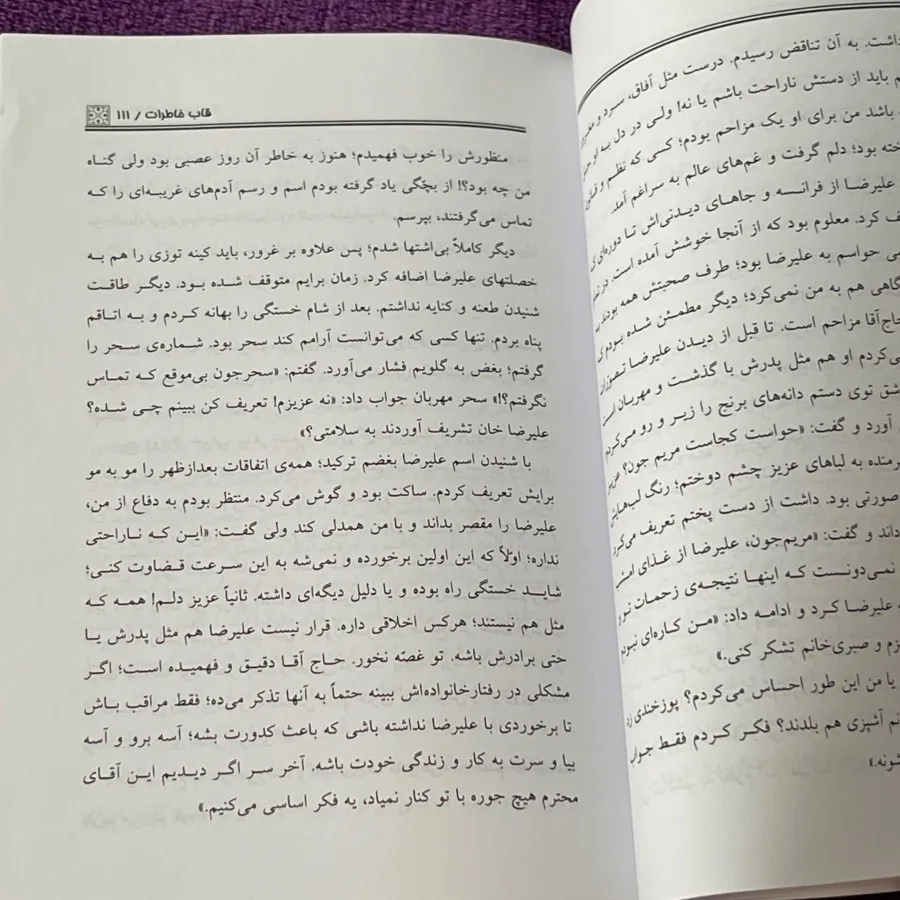 داشت. به آن تناقض رسیدم. درست مثل آفاق، سرد و
باید از دستش ناراحت باشم یا نه! ولی در دل به او
باشد من برای او یک مزاحم بودم؛ کسی که نظم و
بود؛ دلم گرفت و غم‌های عالم به سراغم آمد.
علیرضا از فرانسه و جاهای دیدنی‌اش تا دوره‌ای که
کرد. معلوم بود که از آنجا خوشش آمده است. در
حواسم به علیرضا بود؛ طرف صحبتش همه بودند به
گاهی هم به من نمی‌کرد؛ دیگر مطمئن شده بودم که
حاج‌آقا مزاحم است. تا قبل از دیدن علیرضا
می‌کردم او هم مثل پدرش با گذشت و مهربان است
توی دستم دانه‌های برنج را زیر و رو می‌کردم
آورد و گفت: «حواست کجاست مریم جون؟
به لباهای عزیز چشم دوختم؛ رنگ لب‌هایش
صورتی بود. داشت از دست پختم تعریف می‌کرد
داند و گفت: «مریم‌جون، علیرضا از غذای
نمی‌دونست که اینها نتیجه‌ی زحمات
علیرضا کرد و ادامه داد: «من کاره‌ای نبودم
و صبری‌خانم تشکر کنی.»
یا من این طور احساس می‌کردم؟ پوزخندی زد
آشپزی هم بلدند؟ فکر کردم فقط جواب
قاب خاطرات / ۱۱۱
منظورش را خوب فهمیدم؛ هنوز به خاطر آن روز عصبی بود ولی گناه
من چه بود؟! از بچّگی یاد گرفته بودم اسم و رسم آدم‌های غریبه‌ای را که
تماس می‌گرفتند، بپرسم.
دیگر کاملاً بی‌اشتها شدم؛ پس علاوه بر غرور، باید کینه توزی را هم به
خصلتهای علیرضا اضافه کرد. زمان برایم متوقف شده بود. دیگر طاقت
شنیدن طعنه و کنایه نداشتم. بعد از شام خستگی را بهانه کردم و به اتاقم
پناه بردم. تنها کسی که می‌توانست آرامم کند سحر بود. شماره‌ی سحر را
گرفتم؛ بغض به گلویم فشار می‌آورد. گفتم: «سحرجون بی‌موقع که تماس
نگرفتم؟!» سحر مهربان جواب داد: «نه عزیزم! تعریف کن ببینم چی شده؟
علیرضا خان تشریف آوردند به سلامتی؟»
با شنیدن اسم علیرضا بغضم ترکید؛ همه‌ی اتفاقات بعدازظهر را مو به مو
برایش تعریف کردم. ساکت بود و گوش می‌کرد. منتظر بودم به دفاع از من،
علیرضا را مقصر بداند و با من همدلی کند ولی گفت: «این که ناراحتی
نداره؛ اولاً که این اولین برخورده و نمی‌شه به این سرعت قضاوت کنی؛
شاید خستگی راه بوده و یا دلیل دیگه‌ای داشته. ثانیاً عزیز دلم! همه که
مثل هم نیستند؛ هرکس اخلاقی داره. قرار نیست علیرضا هم مثل پدرش یا
حتی برادرش باشه. تو غصّه نخور. حاج آقا دقیق و فهمیده است؛ اگر
مشکلی در رفتارخانواده‌اش ببینه حتماً به آنها تذکر می‌ده؛ فقط مراقب باش
تا برخوردی با علیرضا نداشته باشی که باعث کدورت بشه؛ آسه برو و آسه
بیا و سرت به کار و زندگی خودت باشه. آخر سر اگر دیدیم این آقای
محترم هیچ جوره با تو کنار نمیاد، یه فکر اساسی می‌کنیم.»